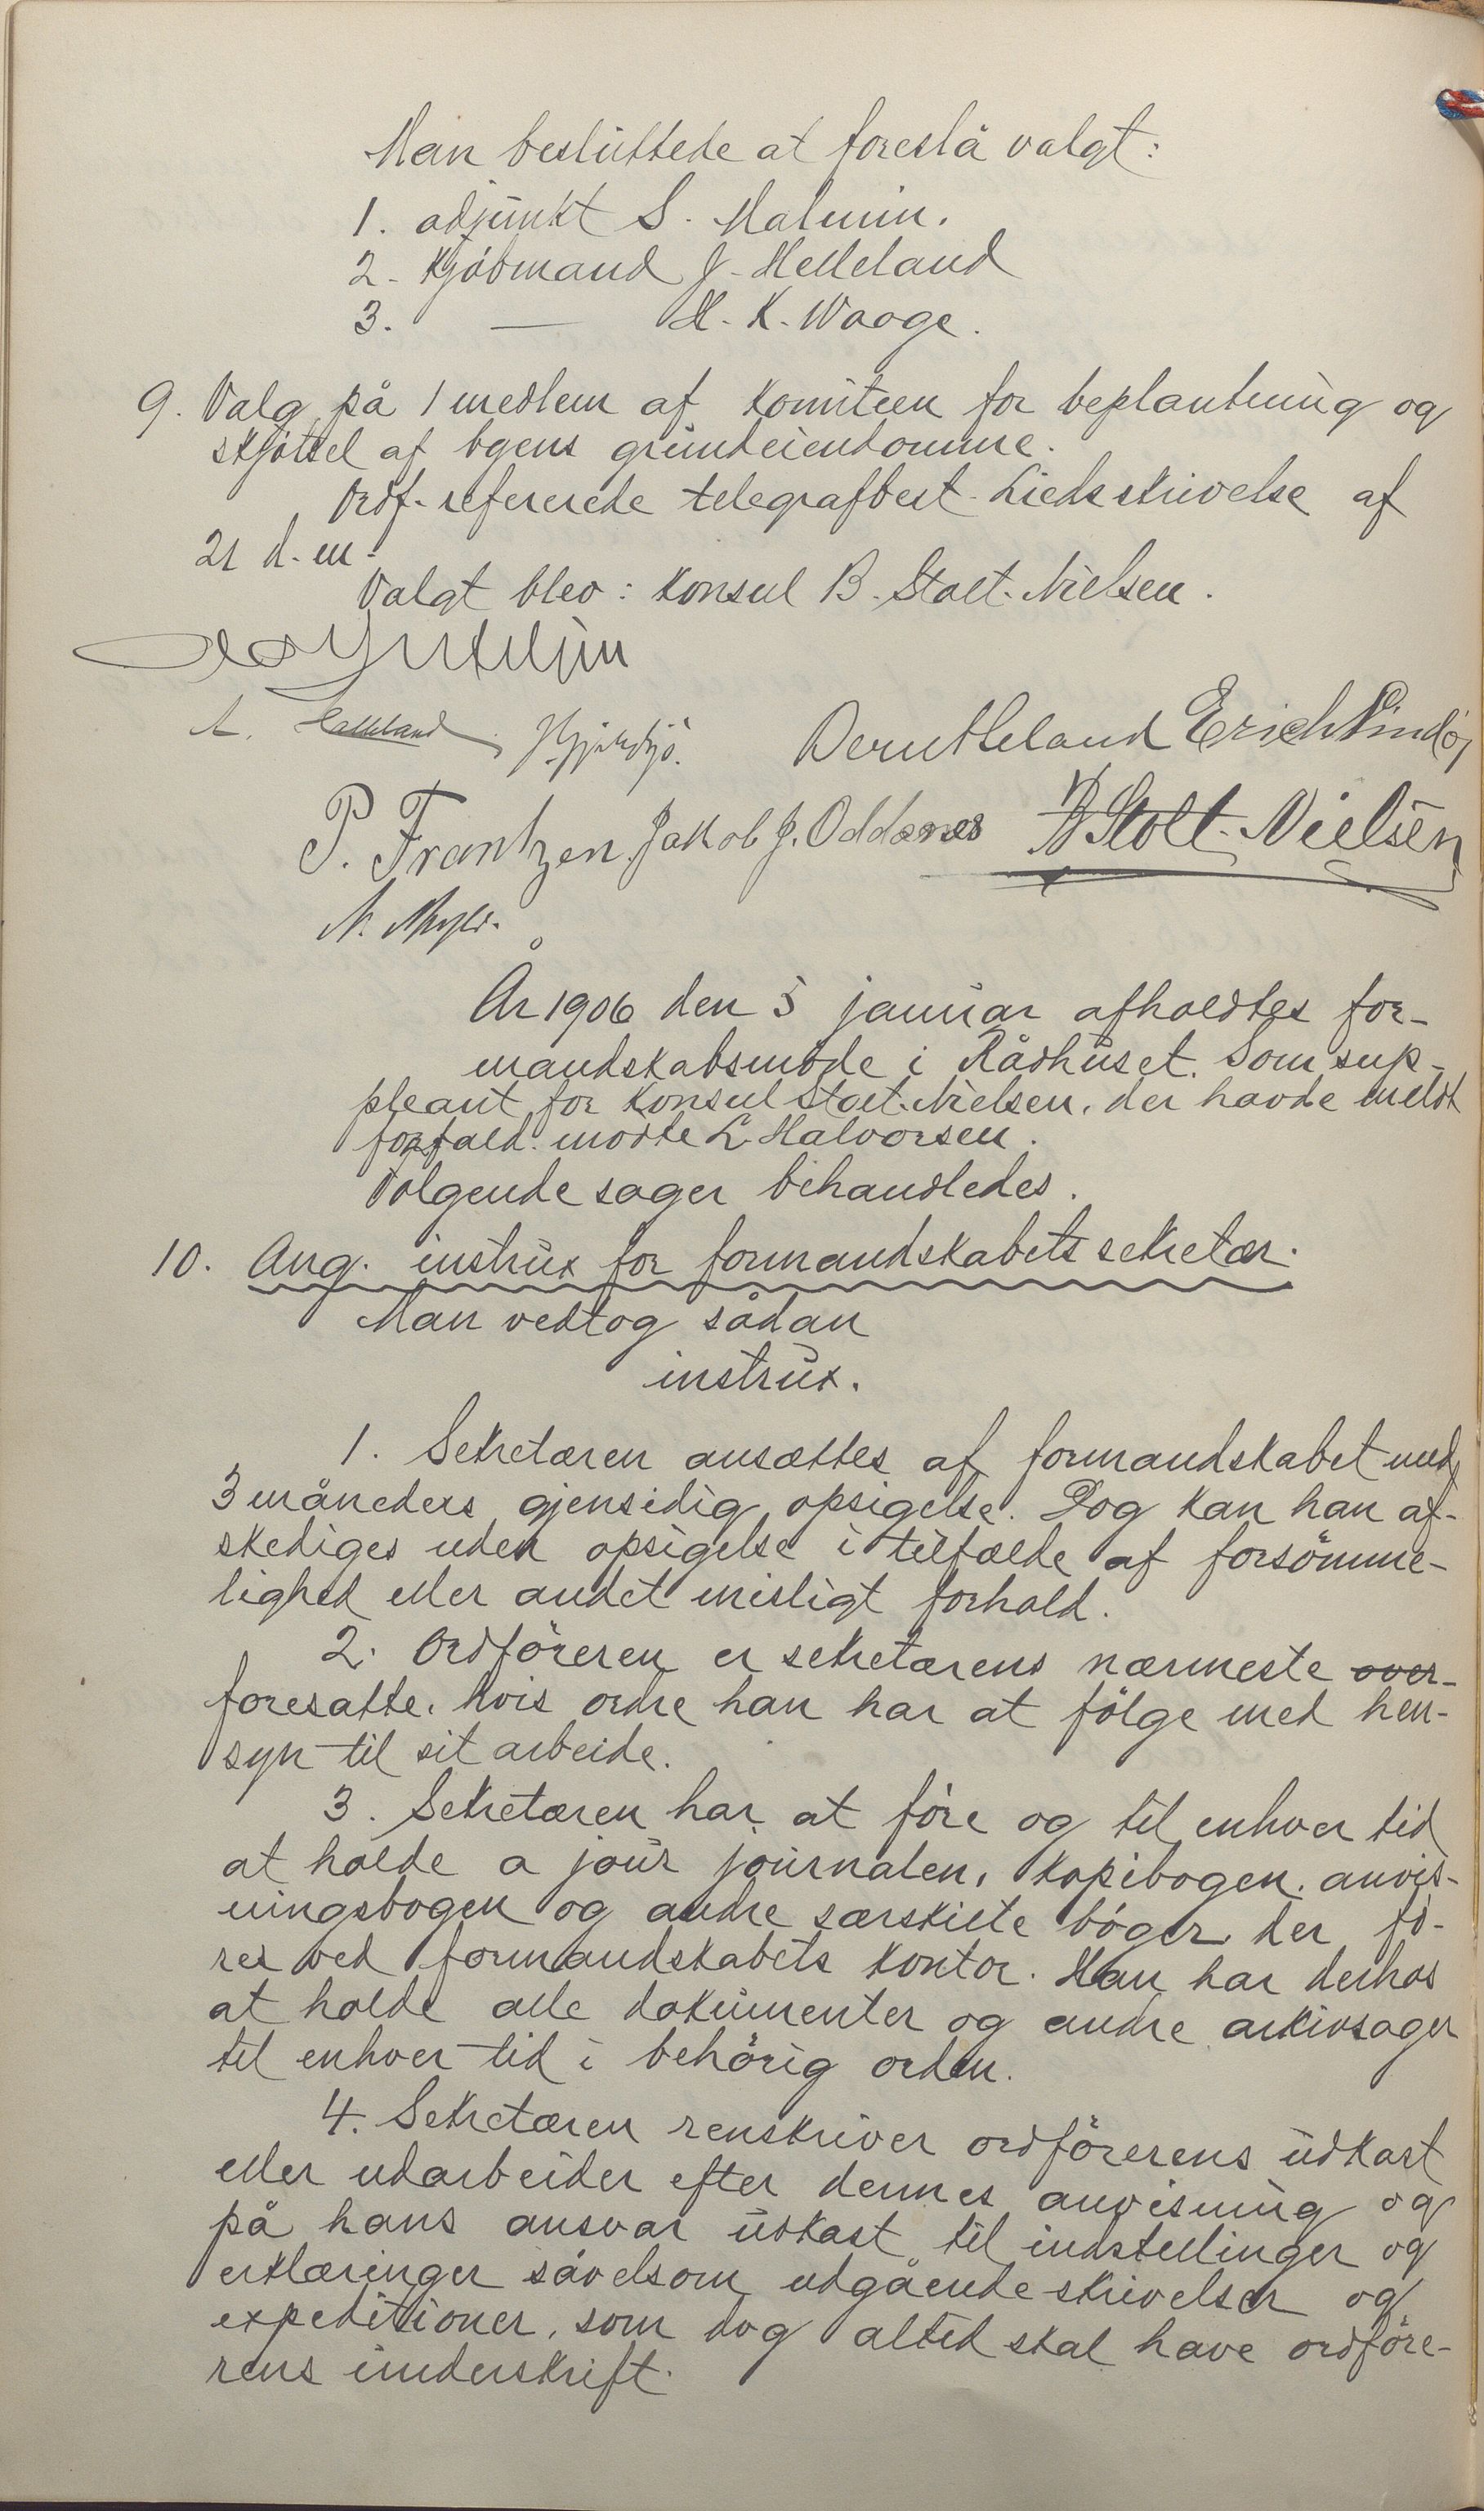 Man besluttede at foreslå valgt:
1. adjunkt S. Malmin.
2. Kjøbmand J. Helleland
3. — H. K. Waage.
9. Valg på 1 medlem af komiteen for beplantning og
skjøtsel af byens grundeiendomme.
Ordf. refererede telegrafbest. Lieds skrivelse af
21 d. m.
Valgt blev: Konsul B. Stolt-Nielsen.
P. Frantzen Jakob J. Oddsnes B Stolt-Nielsen
År 1906 den 5 januar afholdtes for-
mandskabsmøde i Rådhuset. Som sup-
pleant for Konsul Stolt-Nielsen, der havde meldt
forfald. mødte L. Halvorsen.
Følgende sager behandledes.
10. Ang. instrux for formandskabets sekretær.
Man vedtog sådan
instrux.
1. Sekretæren ansættes af formandskabet med
3 måneders gjensidig opsigelse. Dog kan han af-
skediges uden opsigelse i tilfælde af forsømme-
lighed eller andet misligt forhold.
2. Ordføreren er sekretærens nærmeste over-
foresatte, hvis ordre han har at følge med hen-
syn til sit arbeide.
3. Sekretæren har at føre og til enhver tid
at holde a jour journalen, kopibogen, anvis-
ningsbogen og andre særskilte bøger, der fø-
res ved formandskabets kontor. Han har derhos
at holde alle dokumenter og andre arkivsager
til enhver tid i behørig orden.
4. Sekretæren renskriver ordførerens udkast
eller udarbeider efter dennes anvisning og
på hans ansvar udkast til indstillinger og
erklæringer såvelsom udgående skrivelser og
expeditioner, som dog altid skal have ordføre-
rens underskrift.